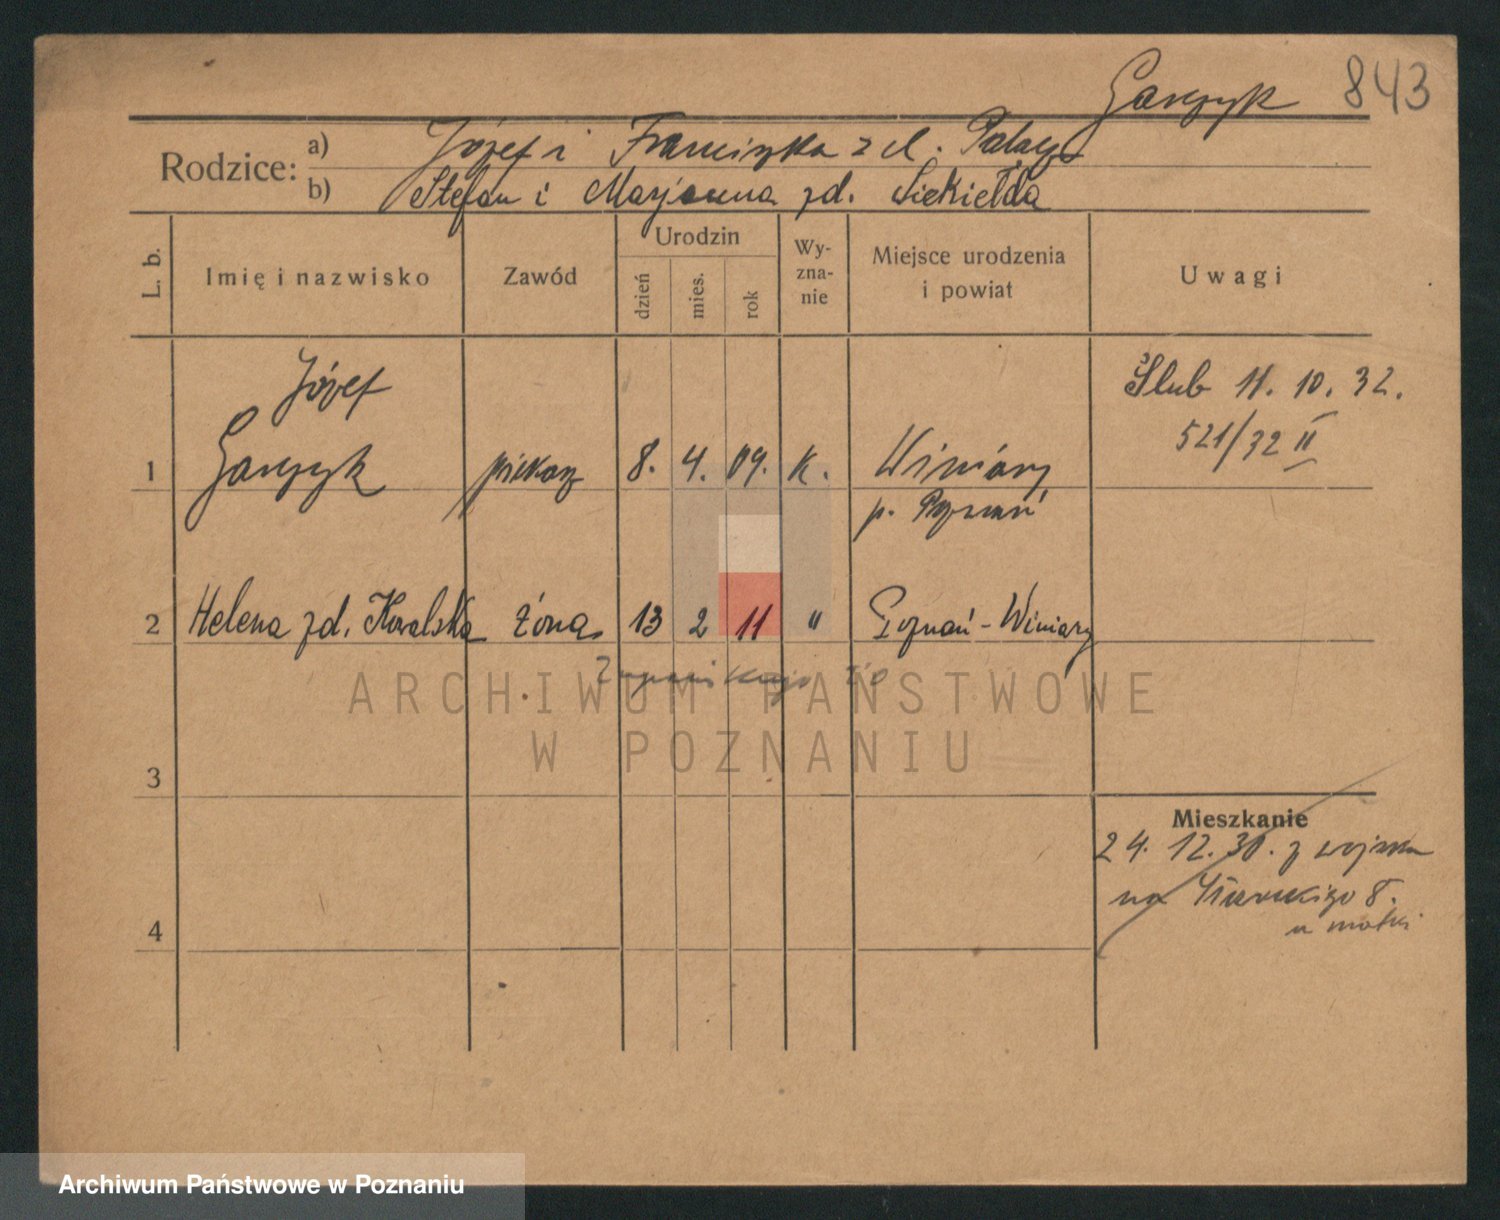 Garczyk 843
Rodzice: a) Józef i Franciszka z d. Palacz
b) Stefan i Marjanna zd. Siekiełda
L. b. Imię i nazwisko Zawód Urodzin dzień mies. rok Wyznanie Miejsce urodzenia i powiat Uwagi
Józef
1 Garczyk piekarz 8. 4. 09. k. Winiary
p. Poznań
Ślub 11. 10. 32.
521/32 II
2 Helena zd. Kowalska żona 13 2 11 " Poznań-Winiary
ARCHIWUM PAŃSTWOWE
W POZNANIU
3
Mieszkanie
24. 12. 30. z wojska
na 8.
u matki
4
Archiwum Państwowe w Poznaniu